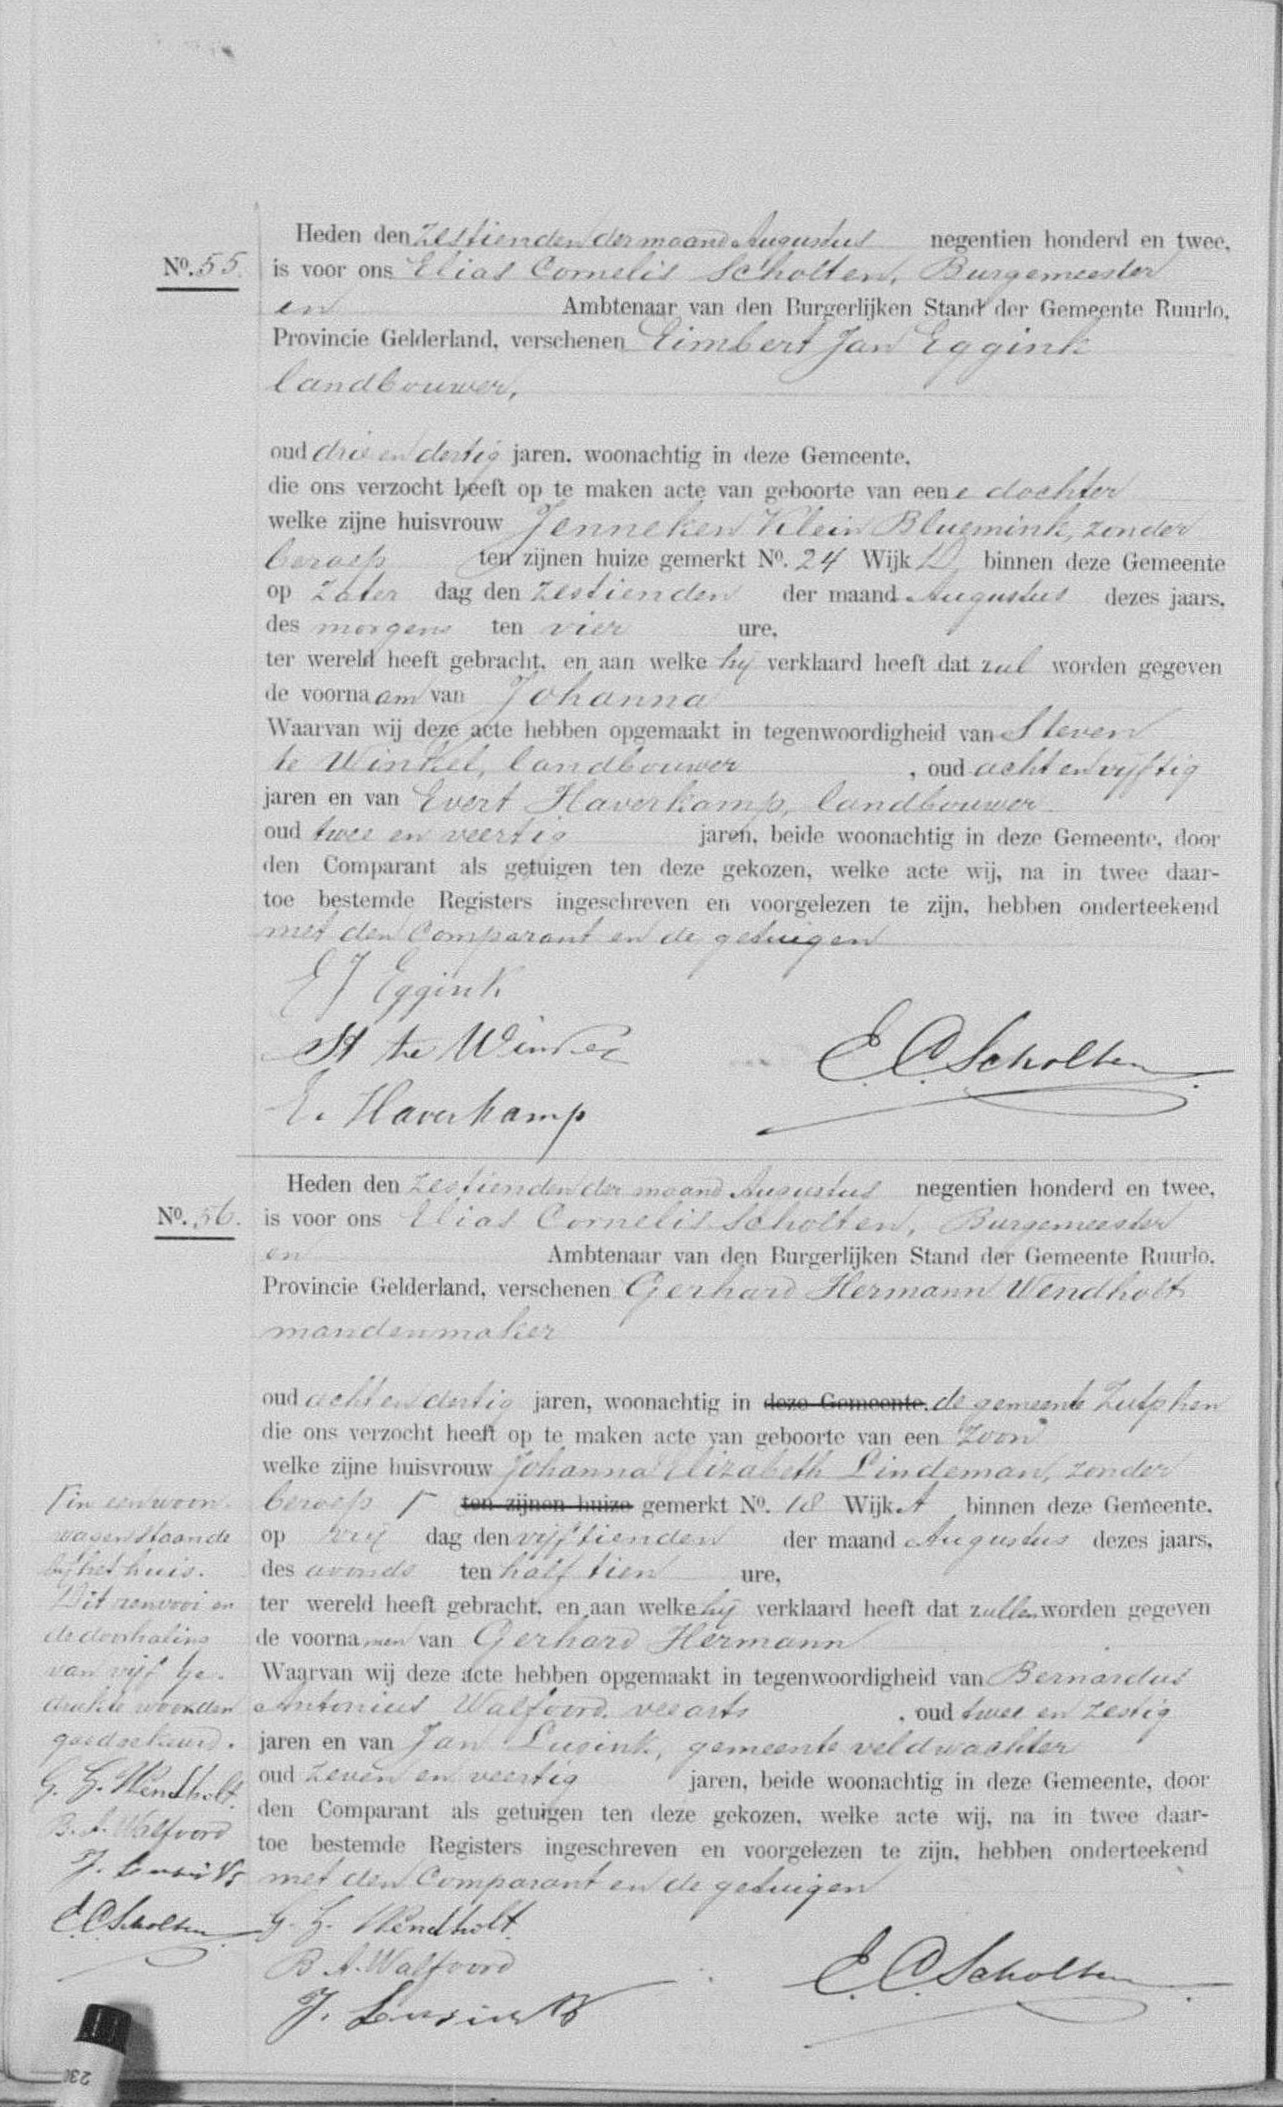 Heden den zestienden der maand Augustus negentien honderd en twee,
No. 55. is voor ons Elias Cornelis Scholten, Burgemeester
en Ambtenaar van den Burgerlijken Stand der Gemeente Ruurlo,
Provincie Gelderland, verschenen Eimbert Jan Eggink
landbouwer,
oud drie en dertig jaren, woonachtig in deze Gemeente,
die ons verzocht heeft op te maken acte van geboorte van eene dochter
welke zijne huisvrouw Jenneken Klein Bluemink, zonder
beroep ten zijnen huize gemerkt No. 24 Wijk D binnen deze Gemeente
op Zater dag den zestienden der maand Augustus dezes jaars,
des morgens ten vier ure,
ter wereld heeft gebracht, en aan welke hij verklaard heeft dat zal worden gegeven
de voornaam van Johanna
Waarvan wij deze acte hebben opgemaakt in tegenwoordigheid van Steven
te Winkel, landbouwer , oud acht en vijftig
jaren en van Evert Haverkamp, landbouwer
oud twee en veertig jaren, beide woonachtig in deze Gemeente, door
den Comparant als getuigen ten deze gekozen, welke acte wij, na in twee daar-
toe bestemde Registers ingeschreven en voorgelezen te zijn, hebben onderteekend
met den Comparant en de getuigen
E J Eggink
St te Winkel
E C Scholten
E. Haverkamp
Heden den zestienden der maand Augustus negentien honderd en twee,
No. 56. is voor ons Elias Cornelis Scholten, Burgemeester
en Ambtenaar van den Burgerlijken Stand der Gemeente Ruurlo,
Provincie Gelderland, verschenen Gerhard Hermann Wendholt
mandenmaker
oud acht en dertig jaren, woonachtig in deze Gemeente, de gemeente Zutphen
die ons verzocht heeft op te maken acte van geboorte van een zoon
welke zijne huisvrouw Johanna Elizabeth Lindeman, zonder
beroep Γ ten zijnen huize gemerkt No. 18 Wijk A binnen deze Gemeente,
op Vrij dag den vijftienden der maand Augustus dezes jaars,
des avonds ten half tien ure,
ter wereld heeft gebracht, en aan welke hij verklaard heeft dat zullen worden gegeven
de voornamen van Gerhard Hermann
Waarvan wij deze acte hebben opgemaakt in tegenwoordigheid van Bernardus
Antonius Walfoord, veearts , oud twee en zestig
jaren en van Jan Lusink, gemeente veldwachter
oud zeven en veertig jaren, beide woonachtig in deze Gemeente, door
den Comparant als getuigen ten deze gekozen, welke acte wij, na in twee daar-
toe bestemde Registers ingeschreven en voorgelezen te zijn, hebben onderteekend
met den Comparant en de getuigen
G. H. Wendholt
B A. Walfoord
E. C. Scholten
J. Lusink
Γ in een woon-
wagen staande
bij het huis.
Dit renvooi en
de doorhaling
van vijf ge-
drukte woorden
goedgekeurd.
G. H. Wendholt.
B. A. Walfoord
J. Lusink
E C Scholten
230